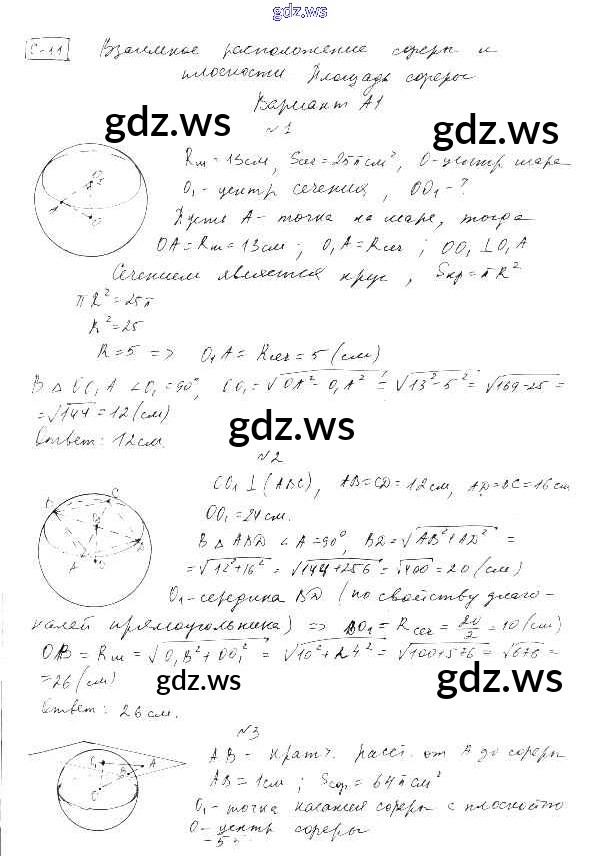 gdz.ws
С-11 Взаимное расположение сферы и
плоскости Площадь сферы
Вариант А1
gdz.ws gdz.ws
№1
Rш=13см, Sсеч=25πсм², О-центр шара
O₁-центр сечения, OO₁-?
Пусть А-точка на шаре, тогда
OA=Rш=13см; O₁A=Rсеч; OO₁⊥O₁A
Сечением является круг, Sкр=πR²
πR²=25π
R²=25
R=5 => O₁A=Rсеч=5(см)
В △OO₁A ∠O₁=90°, OO₁=√OA²-O₁A²=√13²-5²=√169-25=
=√144=12(см)
Ответ: 12см.
gdz.ws gdz.ws
№2
OO₁⊥(ABC), AB=CD=12см, AD=BC=16см
OO₁=24см.
В △ABD ∠A=90°, BD=√AB²+AD² =
=√12²+16²=√144+256=√400=20(см)
O₁-середина BD (по свойству диаго-
налей прямоугольника) => BO₁=Rсеч=20/2=10(см)
OB=Rш=√O₁B²+OO₁²=√10²+24²=√100+576=√676=
=26(см)
gdz.ws gdz.ws
Ответ: 26см.
№3
AB-кратч. расст. от А до сферы
AB=1см; Sсф=64πсм²
O₁-точка касания сферы с плоскостью
О-центр сферы
gdz.ws gdz.ws